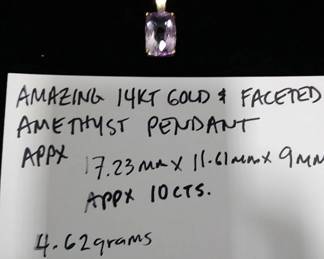 AMAZING 14KT GOLD & FACETED
AMETHYST PENDANT
APPX 17.23mm X 11.61mm X 9mm
APPX 10CTS.
4.62grams